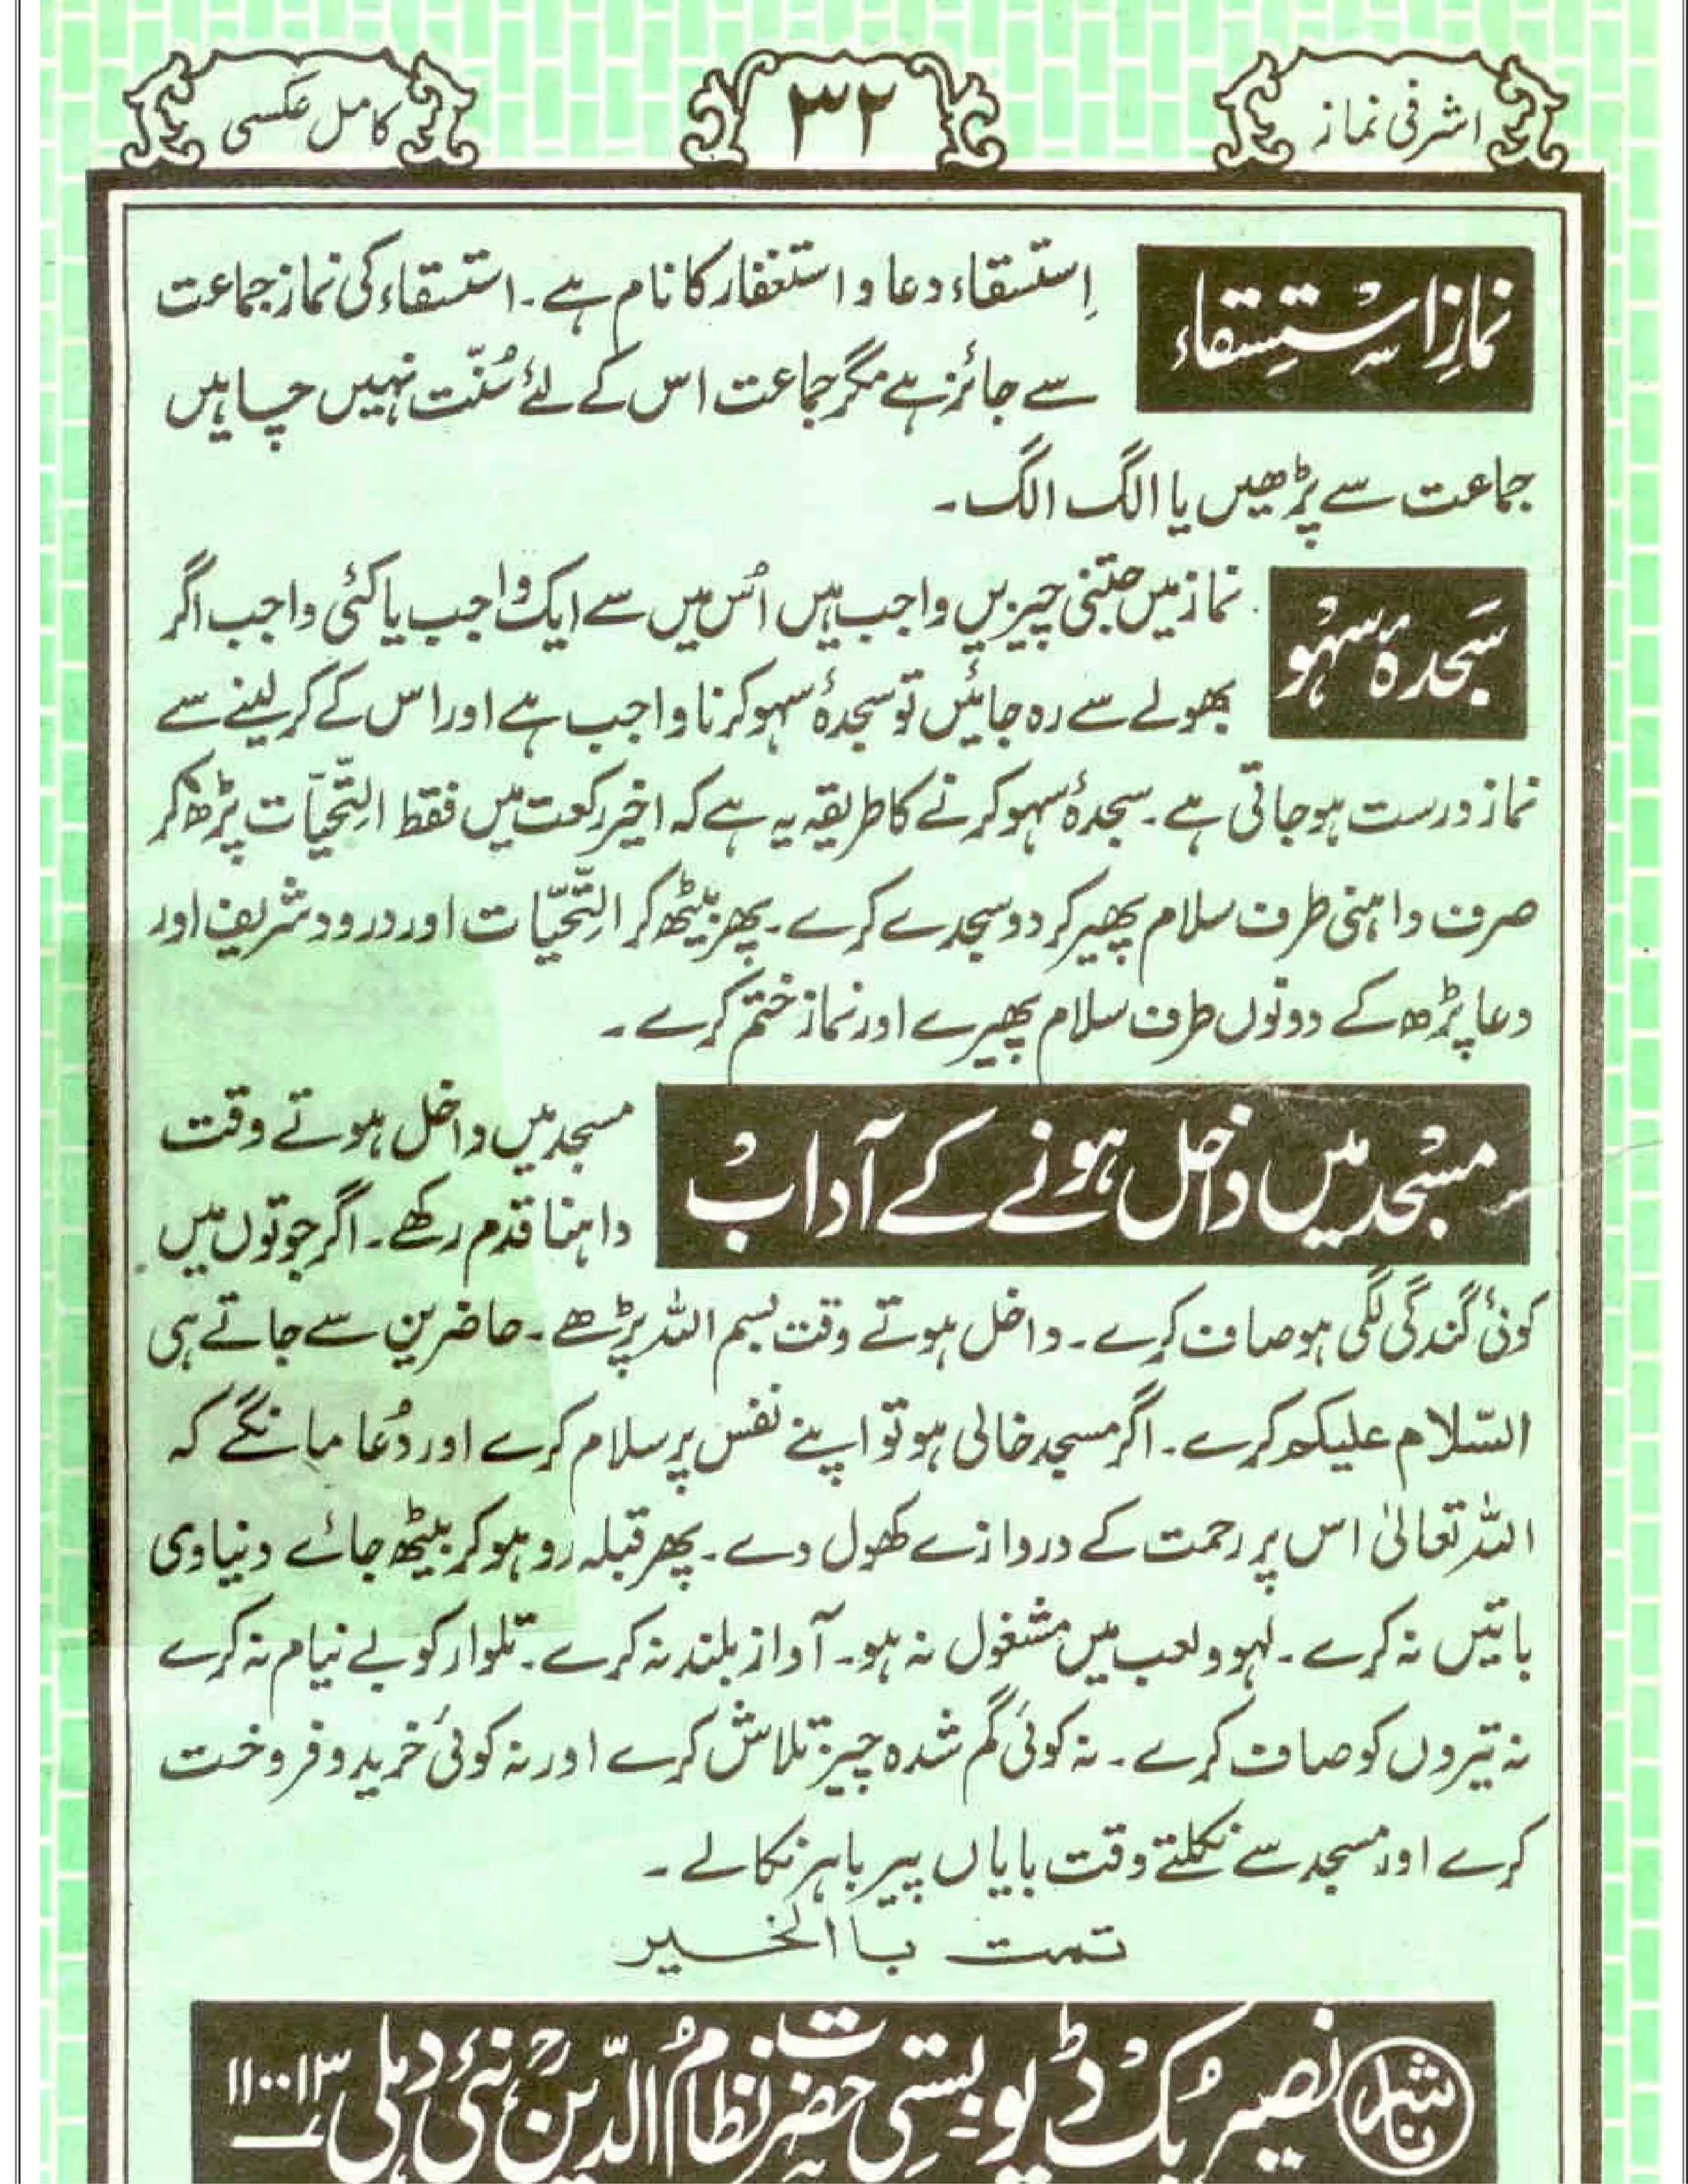 اشرفی نماز
۳۲
کامل عکسی
نمازِ اسْتِسْقاء
اِستسقاء دعا و استغفار کا نام ہے۔ استسقاء کی نماز جماعت
سے جائز ہے مگر جماعت اس کے لئے سُنّت نہیں چاہیں
جماعت سے پڑھیں یا الگ الگ۔
سَجدۂ سہْو
نماز میں جتنی چیزیں واجب ہیں اُس میں سے ایک واجب یا کئی واجب اگر
بھولے سے رہ جائیں تو سجدۂ سہو کرنا واجب ہے اور اس کے کر لینے سے
نماز درست ہو جاتی ہے۔ سجدۂ سہو کرنے کا طریقہ یہ ہے کہ اخیر رکعت میں فقط التّحیّات پڑھ کر
صرف داہنی طرف سلام پھیر کر دو سجدے کرے۔ پھر بیٹھ کر التّحیّات اور درود شریف اور
دعا پڑھ کے دونوں طرف سلام پھیرے اور نماز ختم کرے۔
مسْجد میں داخل ہونے کے آدابْ
مسجد میں داخل ہوتے وقت
داہنا قدم رکھے۔ اگر جوتوں میں
کوئی گندگی لگی ہو صاف کرے۔ داخل ہوتے وقت بسم اللہ پڑھے۔ حاضرین سے جاتے ہی
السّلام علیکم کرے۔ اگر مسجد خالی ہو تو اپنے نفس پر سلام کرے اور دُعا مانگے کہ
اللہ تعالیٰ اس پر رحمت کے دروازے کھول دے۔ پھر قبلہ رو ہو کر بیٹھ جائے دنیاوی
باتیں نہ کرے۔ لہو و لعب میں مشغول نہ ہو۔ آواز بلند نہ کرے۔ تلوار کو بے نیام نہ کرے
نہ تیروں کو صاف کرے۔ نہ کوئی گم شدہ چیز تلاش کرے اور نہ کوئی خرید و فروخت
کرے اور مسجد سے نکلتے وقت بایاں پیر باہر نکالے۔
تمت با الخسیر
ناشر نصیر بُک ڈپو۔ بستی حضرت نظامُ الدّینؒ، نئی دہلی ۱۱۰۰۱۳